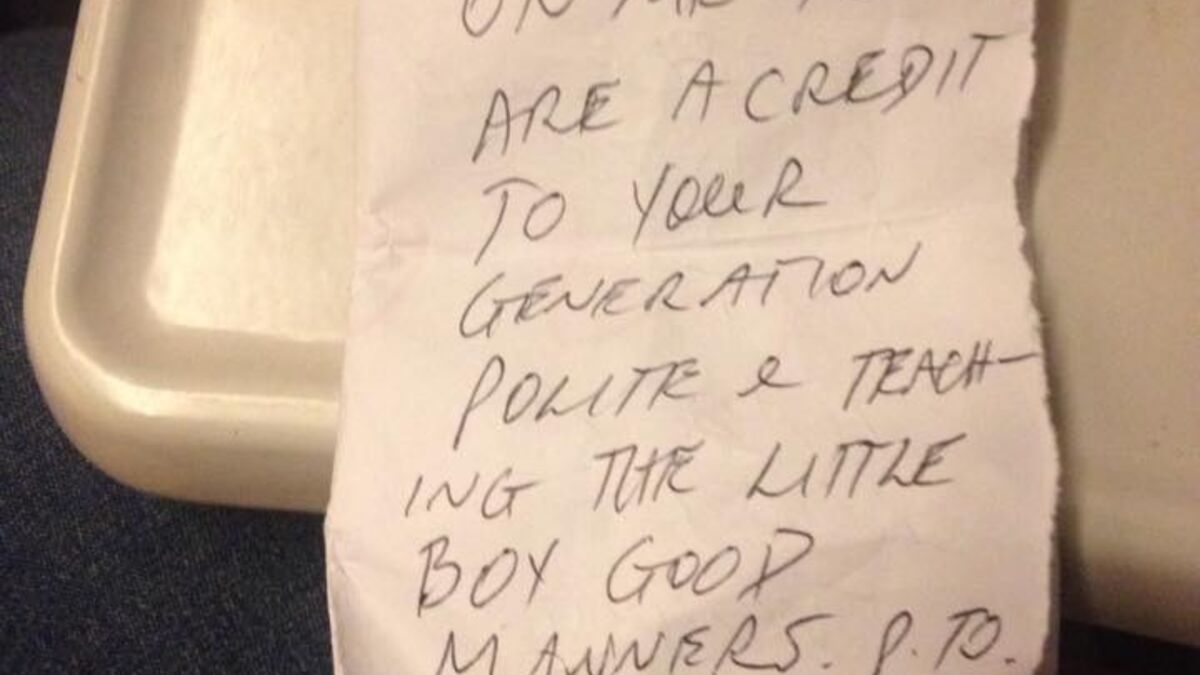 ON
ARE A CREDIT
TO YOUR
GENERATION
POLITE & TEACH-
ING THE LITTLE
BOY GOOD
MANNERS. P.TO.